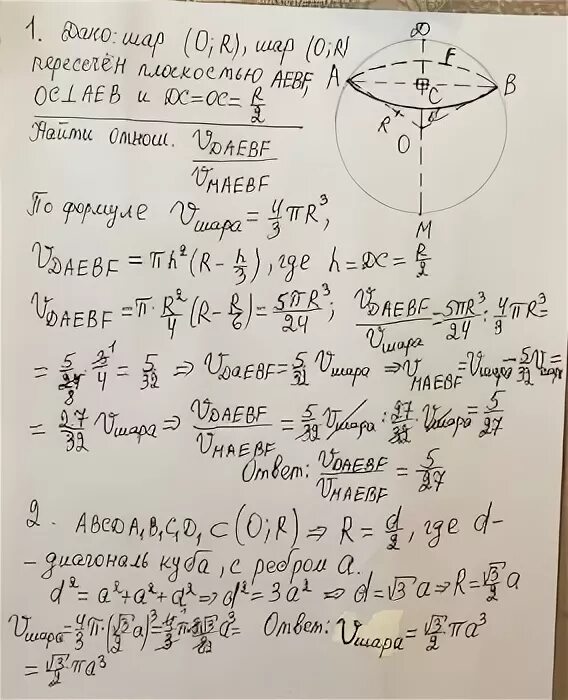 1. Дано: шар (O; R), шар (O; R)
пересечён плоскостью AEBF,
OC⊥AEB и DC=OC= R/2
Найти отнош. V_DAEBF / V_MAEBF
По формуле V_шара = 4/3 πR³,
V_DAEBF = πh²(R - h/3), где h = DC = R/2
V_DAEBF = π · R²/4 (R - R/6) = 5πR³/24; V_DAEBF / V_шара = 5πR³/24 : 4/3 πR³ =
= 5/24 8 · 3/4 1 = 5/32 ⇒ V_DAEBF = 5/32 V_шара ⇒ V_MAEBF = V_шара - 5/32 V_шар =
= 27/32 V_шара ⇒ V_DAEBF / V_MAEBF = 5/32 V_шара : 27/32 · V_шара = 5/27
Ответ: V_DAEBF / V_MAEBF = 5/27
2. ABCDA₁B₁C₁D₁ ⊂ (O; R) ⇒ R = d/2, где d-
- диагональ куба, с ребром a.
d² = a² + a² + a² ⇒ d² = 3a² ⇒ d = √3 a ⇒ R = √3/2 a
V_шара = 4/3 π · (√3/2 a)³ = 4/3 π · 3√3/8 a³ = Ответ: V_шара = √3/2 πa³
= √3/2 πa³
D
F
A
C
B
R
O
M